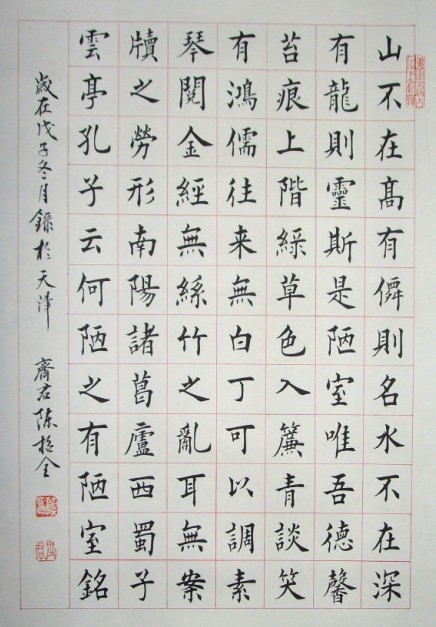 山不在髙有僊則名水不在深
有龍則靈斯是陋室唯吾德馨
苔痕上階綠草色入簾青談笑
有鴻儒往来無白丁可以調素
琴閱金經無絲竹之亂耳無案
牘之勞形南陽諸葛廬西蜀子
雲亭孔子云何陋之有陋室銘
歲在戊子冬月錄於天澤 齋君陳全